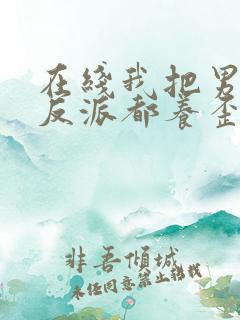 在线我把男
反派都养歪
非吾倾城
未经同意禁止转载